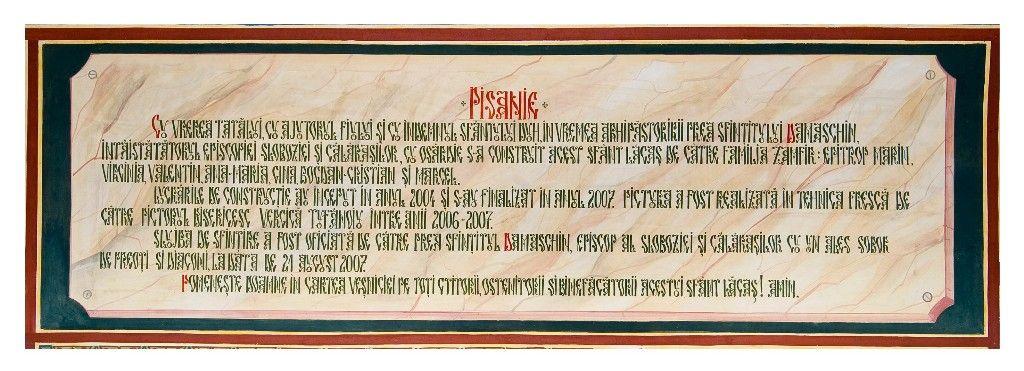 PISANIE
CU VREREA TATĂLUI, CU AJUTORUL FIULUI ȘI CU ÎNDEMNUL SFÂNTULUI DUH, ÎN VREMEA ARHIPĂSTORIRII PREA SFINȚITULUI DAMASCHIN,
ÎNTÂISTĂTĂTORUL EPISCOPIEI SLOBOZIEI ȘI CĂLĂRAȘILOR, CU OSÂRDIE S-A CONSTRUIT ACEST SFÂNT LĂCAȘ DE CĂTRE FAMILIA ZAMFIR: EPITROP MARIN,
VIRGINIA, VALENTIN, ANA-MARIA, GINA, BOGDAN-CRISTIAN ȘI MARCEL.
LUCRĂRILE DE CONSTRUCȚIE AU ÎNCEPUT ÎN ANUL 2004 ȘI S-AU FINALIZAT ÎN ANUL 2007. PICTURA A FOST REALIZATĂ ÎN TEHNICA FRESCĂ DE
CĂTRE PICTORUL BISERICESC VERGICĂ TUȚĂNOIU ÎNTRE ANII 2006-2007.
SLUJBA DE SFINȚIRE A FOST OFICIATĂ DE CĂTRE PREA SFINȚITUL DAMASCHIN, EPISCOP AL SLOBOZIEI ȘI CĂLĂRAȘILOR CU UN ALES SOBOR
DE PREOȚI ȘI DIACONI, LA DATA DE 21 AUGUST 2007.
POMENEȘTE DOAMNE ÎN CARTEA VEȘNICIEI PE TOȚI CTITORII, OSTENITORII ȘI BINEFĂCĂTORII ACESTUI SFÂNT LĂCAȘ! AMIN.